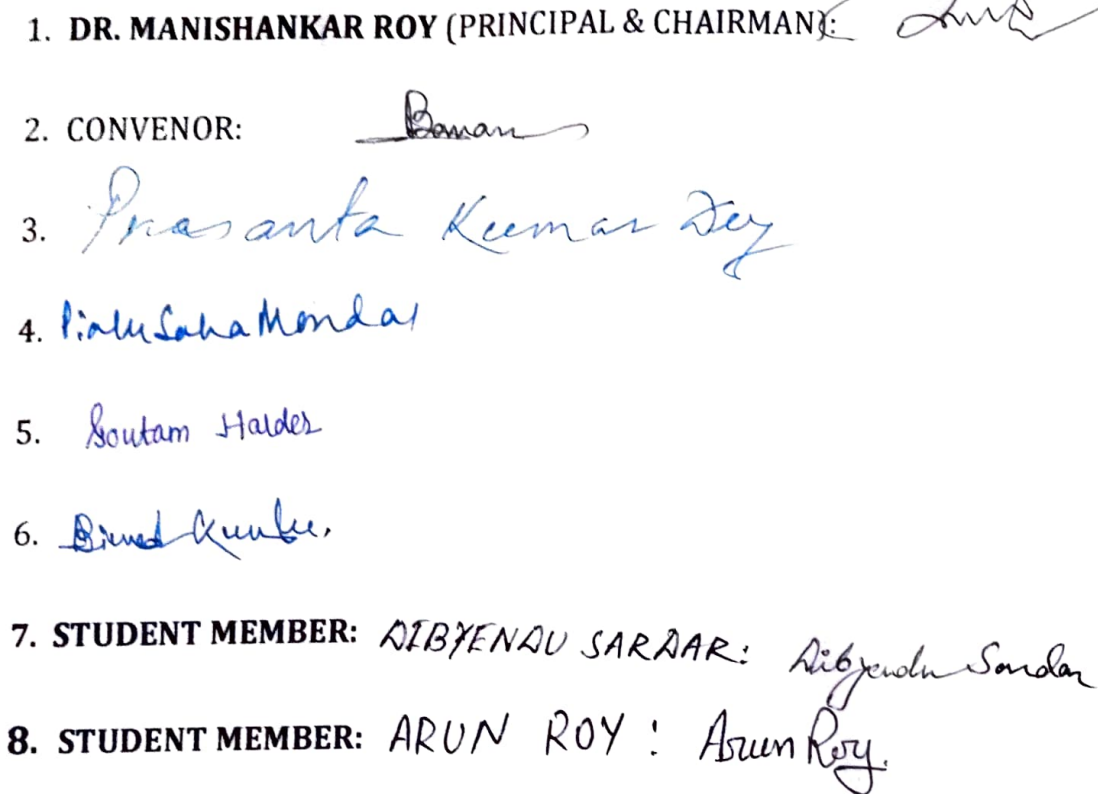 1. DR. MANISHANKAR ROY (PRINCIPAL & CHAIRMAN):
2. CONVENOR:
3. Prasanta Kumar Dey
4. Saha Mondal
5. Goutam Halder
6. Kundu.
7. STUDENT MEMBER: DIBYENDU SARDAR: Dibyendu Sardar
8. STUDENT MEMBER: ARUN ROY: Arun Roy.